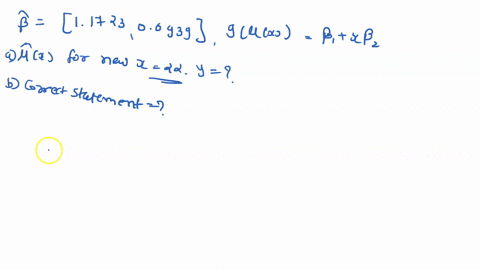 β̂ = [1.1723, 0.0939], g(μ(x)) = β₁+xβ₂
a) μ̂(x) for new x=22. y=?
b) Correct statement=?